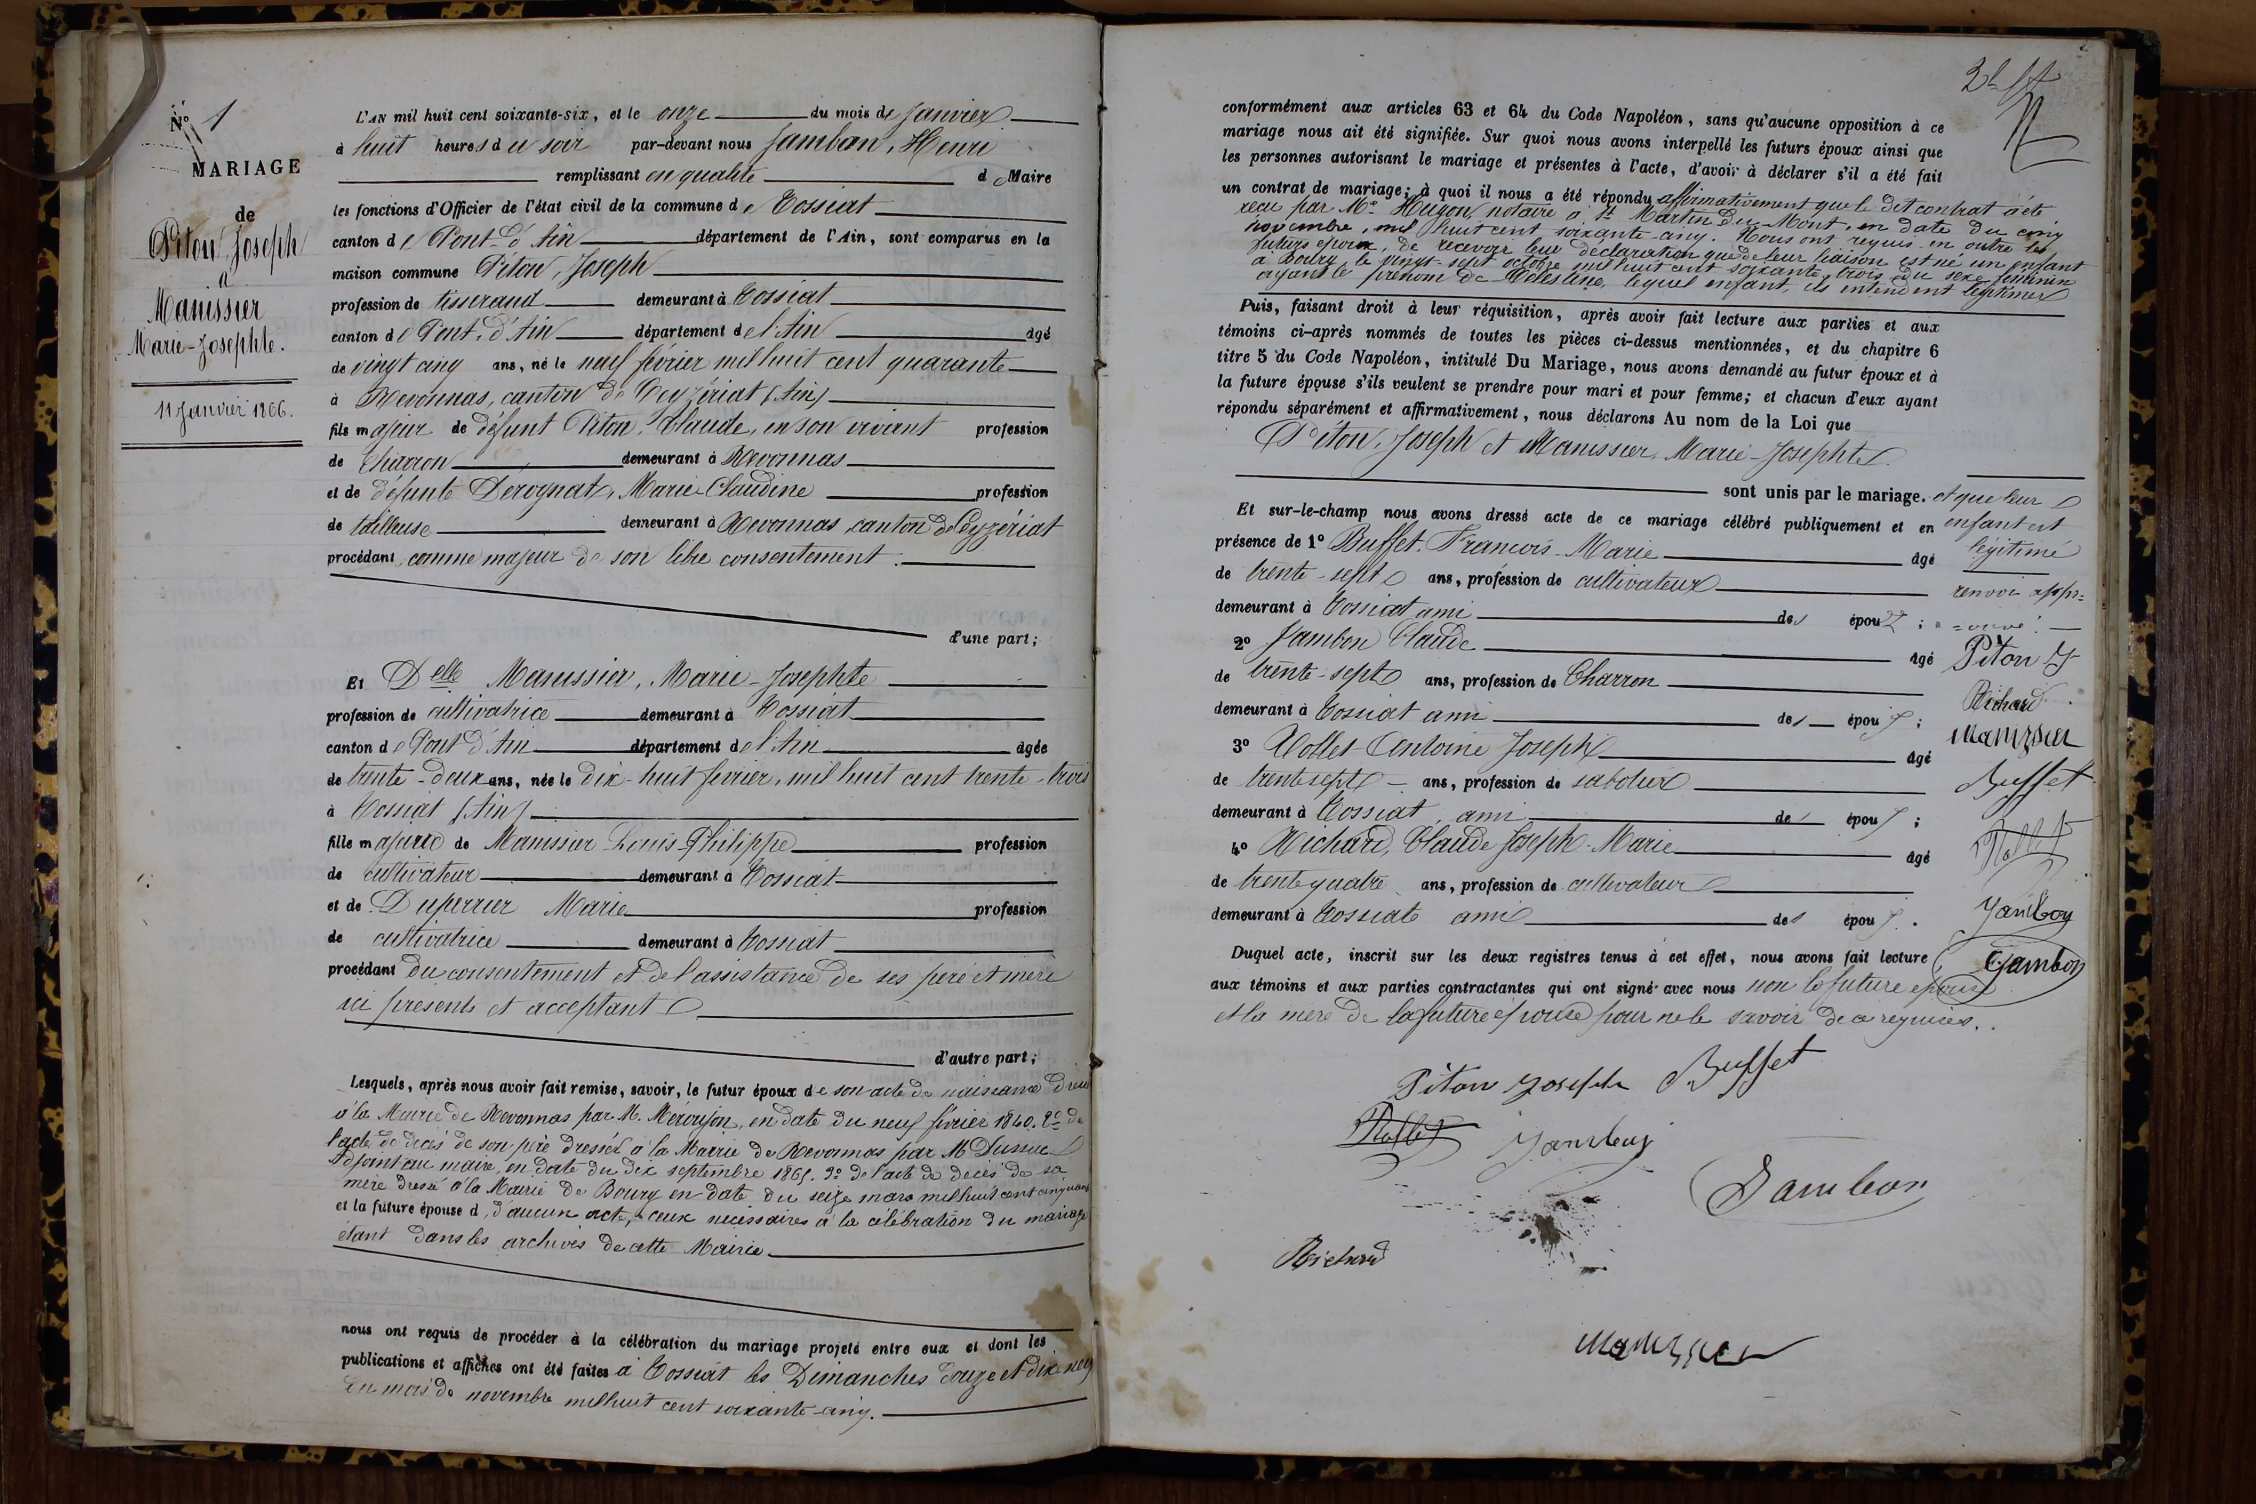 N° 1
MARIAGE
de
Piton, Joseph
à
Manissier
Marie-Josephte.
11 Janvier 1866.
L'AN mil huit cent soixante-six, et le onze du mois de Janvier
à huit heures du soir par-devant nous Jambon, Henri
remplissant en qualité de Maire
les fonctions d'Officier de l'état civil de la commune de Tossiat
canton de Pont-d'Ain département de l'Ain, sont comparus en la
maison commune Piton, Joseph
profession de tisserand demeurant à Tossiat
canton de Pont-d'Ain département de l'Ain âgé
de vingt cinq ans, né le neuf février mil huit cent quarante
à Revonnas, canton de Ceyzériat (Ain)
fils majeur de défunt Piton, Claude, en son vivant profession
de Charron demeurant à Revonnas
et de défunte Dérognat, Marie-Claudine profession
de tailleuse demeurant à Revonnas canton de Ceyzériat
procédant comme majeur de son libre consentement.
d'une part;
Et Delle Manissier, Marie-Josephte
profession de cultivatrice demeurant à Tossiat
canton de Pont d'Ain département de l'Ain âgée
de trente-deux ans, née le dix-huit février, mil huit cent trente-trois
à Tossiat (Ain)
fille majeure de Manissier Louis-Philippe profession
de cultivateur demeurant à Tossiat
et de Duperrier Marie profession
de cultivatrice demeurant à Tossiat
procédant du consentement et de l'assistance de ses père et mère
ici présents et acceptant
d'autre part;
Lesquels, après nous avoir fait remise, savoir, le futur époux de son acte de naissance dressé
à la Mairie de Revonnas par M. en date du neuf février 1840. 2° de
l'acte de décès de son père dressé à la Mairie de Revonnas par M.
adjoint au maire, en date du dix septembre 1865. 3° de l'acte de décès de sa
mère dressé à la Mairie de Bourg en date du seize mars mil huit cent cinquante
et la future épouse d, d'aucun acte, ceux nécessaires à la célébration du mariage
étant dans les archives de cette Mairie
nous ont requis de procéder à la célébration du mariage projeté entre eux et dont les
publications et affiches ont été faites à Tossiat les Dimanches douze et dix neuf
du mois de novembre mil huit cent soixante-cinq.
2
conformément aux articles 63 et 64 du Code Napoléon, sans qu'aucune opposition à ce
mariage nous ait été signifiée. Sur quoi nous avons interpellé les futurs époux ainsi que
les personnes autorisant le mariage et présentes à l'acte, d'avoir à déclarer s'il a été fait
un contrat de mariage; à quoi il nous a été répondu affirmativement que le dit contrat a été
reçu par Me Hugon notaire à St Martin du Mont, en date du cinq
novembre, mil huit cent soixante-cinq. Nous ont requis en outre les
futurs époux, de recevoir leur déclaration que de leur liaison est né un enfant
à Bourg, le vingt-sept octobre mil huit cent soixante-trois du sexe féminin
ayant le prénom de Célestine, lequel enfant, ils entendent légitimer
Puis, faisant droit à leur réquisition, après avoir fait lecture aux parties et aux
témoins ci-après nommés de toutes les pièces ci-dessus mentionnées, et du chapitre 6
titre 5 du Code Napoléon, intitulé Du Mariage, nous avons demandé au futur époux et à
la future épouse s'ils veulent se prendre pour mari et pour femme; et chacun d'eux ayant
répondu séparément et affirmativement, nous déclarons Au nom de la Loi que
Piton, Joseph et Manissier, Marie-Josephte
sont unis par le mariage. et que leur
enfant est
légitimé
renvoi appr=
=ouvé.
Et sur-le-champ nous avons dressé acte de ce mariage célébré publiquement et en
présence de 1° Buffet, François-Marie âgé
de trente-sept ans, profession de cultivateur
demeurant à Tossiat ami des époux;
2° Jambon Claude âgé
de trente-sept ans, profession de Charron
demeurant à Tossiat ami des époux;
3° Rollet Antoine Joseph âgé
de trente sept ans, profession de sabotier
demeurant à Tossiat, ami des époux;
4° Richard, Claude Joseph-Marie âgé
de trente quatre ans, profession de cultivateur
demeurant à Tossiat ami des époux.
Duquel acte, inscrit sur les deux registres tenus à cet effet, nous avons fait lecture
aux témoins et aux parties contractantes qui ont signé avec nous non la future épouse
et la mère de la future épouse pour ne le savoir de ce requises.
Piton J
Richard
Manissier
Buffet
Rollet
Jambon
Jambon
Piton Joseph
Buffet
Rollet
Jambon
Jambon
Richard
Manissier